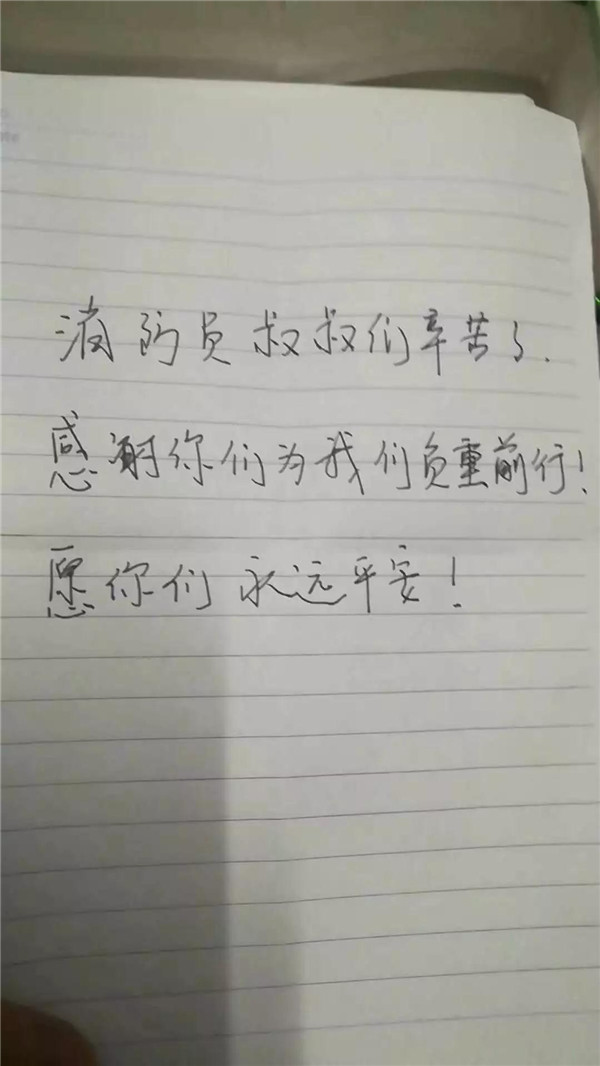 消防员叔叔们辛苦了.
感谢你们为我们负重前行!
愿你们永远平安!